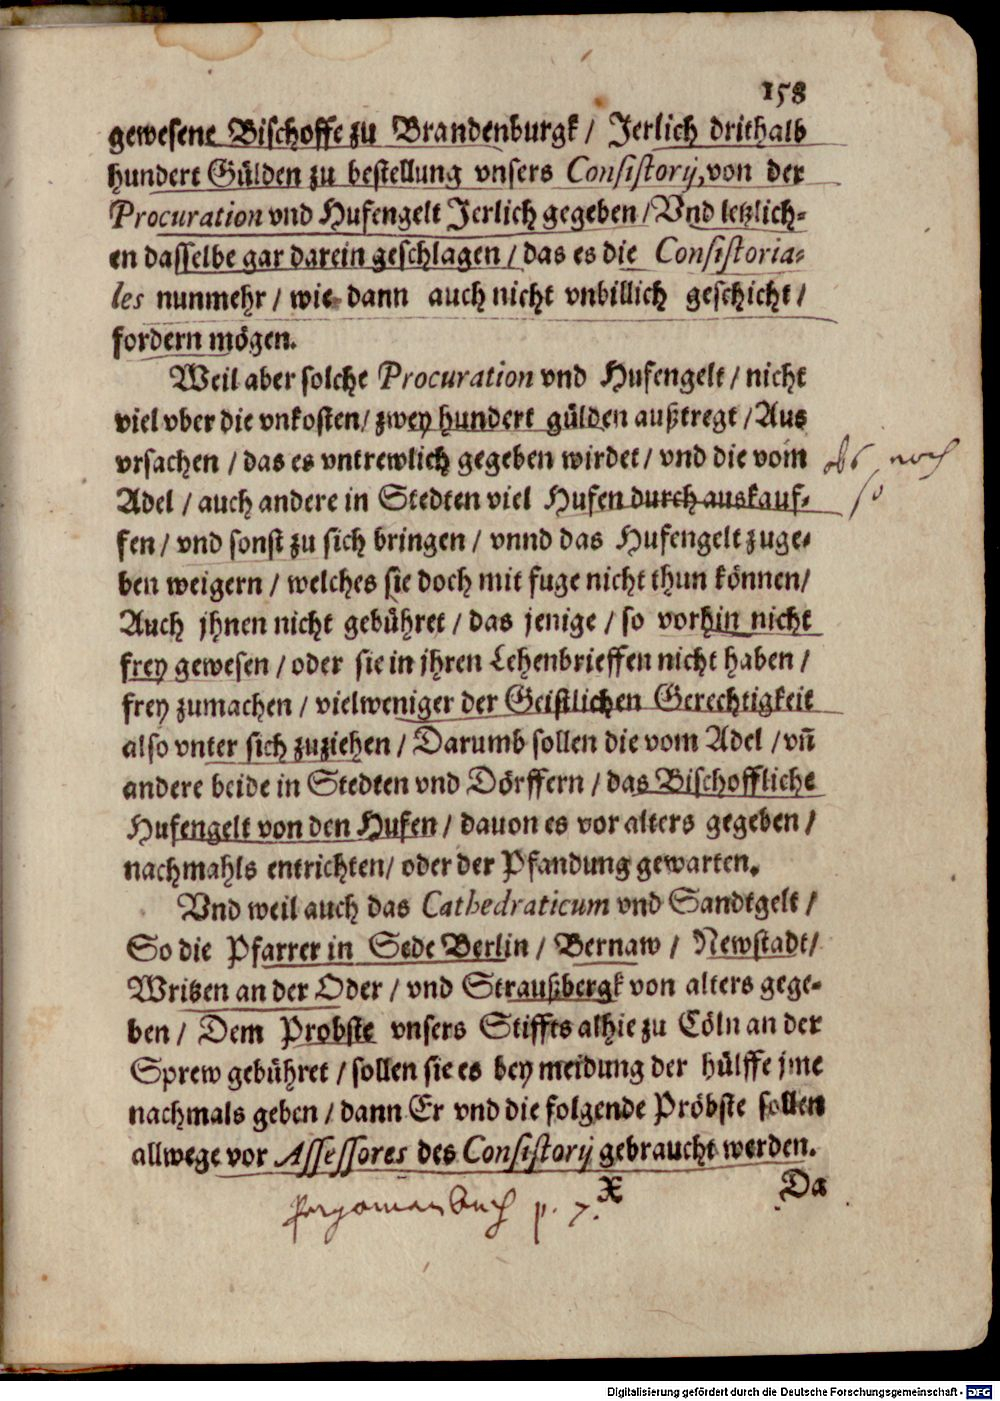 158
gewesene Bischoffe zu Brandenburgk / Jerlich drithalb
hundert Gülden zu bestellung vnsers Consistorij, von der
Procuration vnd Hufengelt Jerlich gegeben / Vnd letzlich-
en dasselbe gar darein geschlagen / das es die Consistoria-
les nunmehr / wie dann auch nicht vnbillich geschicht /
fordern mögen.
Weil aber solche Procuration vnd Hufengelt / nicht
viel vber die vnkosten / zwey hundert gülden außtregt / Aus
vrsachen / das es vntrewlich gegeben wirdet / vnd die vom
Adel / auch andere in Stedten viel Hufen durch auskauf-
fen / vnd sonst zu sich bringen / vnnd das Hufengelt zuge-
ben weigern / welches sie doch mit fuge nicht thun können /
Auch jhnen nicht gebühret / das jenige / so vorhin nicht
frey gewesen / oder sie in jhren Lehenbrieffen nicht haben /
frey zumachen / vielweniger der Geistlichen Gerechtigkeit
also vnter sich zuziehen / Darumb sollen die vom Adel / vñ
andere beide in Stedten vnd Dörffern / das Bischoffliche
Hufengelt von den Hufen / dauon es vor alters gegeben /
nachmahls entrichten / oder der Pfandung gewarten.
Vnd weil auch das Cathedraticum vnd Sandtgelt /
So die Pfarrer in Sede Berlin / Bernaw / Newstadt /
Writzen an der Oder / vnd Straußbergk von alters gege-
ben / Dem Probste vnsers Stiffts alhie zu Cöln an der
Sprew gebühret / sollen sie es bey meidung der hülffe jme
nachmals geben / dann Er vnd die folgende Pröbste sollen
allwege vor Assessores des Consistorij gebraucht werden.
X Da
p. 7.
Digitalisierung gefördert durch die Deutsche Forschungsgemeinschaft - DFG